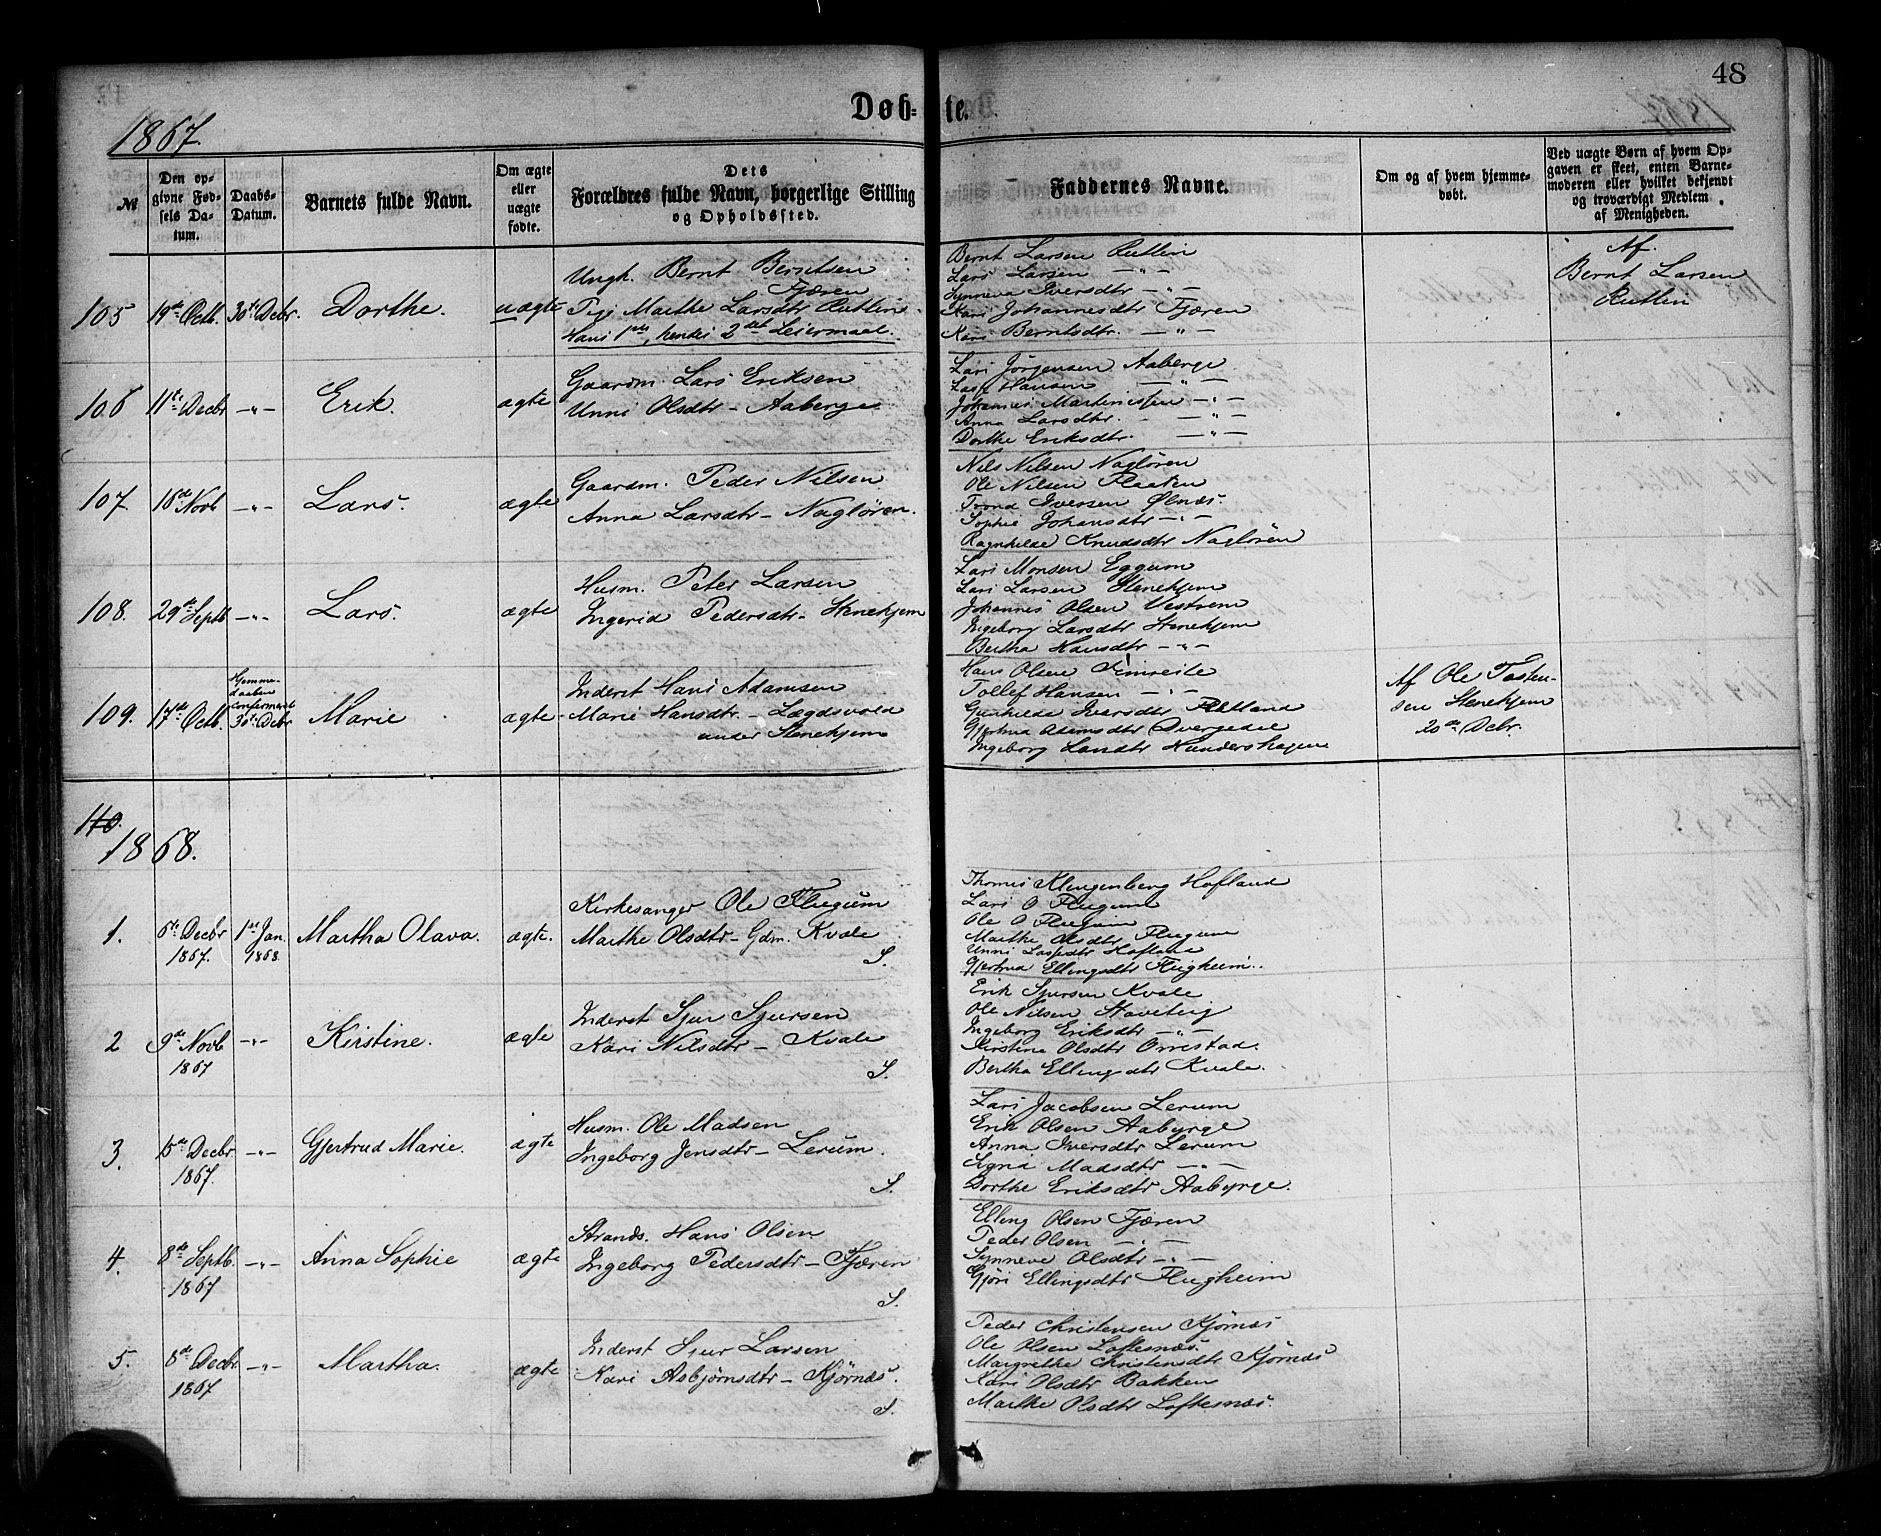 48
Døb-te.
1867.
№
Den opgivne Fødsels Datum.
Daabs-Datum.
Barnets fulde Navn.
Om ægte eller uægte fødte.
Dets Forældres fulde Navn, borgerlige Stilling og Opholdssted.
Faddernes Navne.
Om og af hvem hjemmedøbt.
Ved uægte Børn af hvem Opgaven er skeet, enten Barnemoderen eller hvilket bekjendt og troværdigt Medlem af Menigheden.
105 19de Octb. 30te Decbr. Dorthe. uægte
Ungk. Bernt Berntsen
Fjæren
Pige Marthe Larsdtr Rutlin
Hans 1ste, hendes 2det Leiermaal.
Bernt Larsen Rutlin
Lars Larsen — " —
Synneva Iversdtr — " —
Kari Johannesdtr Fjæren
Kari Berntsdtr. — " —
Af
Bernt Larsen
Rutlin
106 11te Decbr — " — Erik. ægte
Gaardm. Lars Eriksen
Unni Olsdtr — Aaberge
Lars Jørgensen Aaberge
Lasse Hansen — " —
Johannes Martinussen — " —
Anna Larsdtr. — " —
Dorthe Eriksdtr. — " —
107. 18de Novb — " — Lars. ægte
Gaardm. Peder Nilsen
Anna Larsdtr — Nagløren.
Nils Nilsen Nagløren
Ole Nilsen Flaaten
Trond Iversen Ølnæs.
Sophie Johansdtr — " —
Ragnhilde Knudsdtr Nagløren
108. 29de Septb — " — Lars. ægte
Husm. Peter Larsen
Ingerid Pedersdtr — Stenehjem
Lars Monsen Eggum
Lars Larsen Stenehjem
Johannes Olsen Vestrem
Ingeborg Larsdtr Stenehjem
Bertha Hansdtr — " —
109. 17de Octb. Hjemmedaaben confirmeret 30te Decbr Marie ægte
Inderst Hans Adamsen
Marie Hansdtr. — Lægdsvold
under Stenehjem
Hans Olsen Fimreite
Tollef Hansen — " —
Gunhilde Iversdtr Flatland
Gjertrua Adamsdtr Dvergedal
Ingeborg Larsdtr Hundershagen
Af Ole Tosten-
sen Stenehjem
20de Decbr.
110.
1868.
1. 6te Decbr 1867. 1ste Jan. 1868. Martha Olava. ægte.
Kirkesanger Ole Flugum
Marthe Olsdtr — Gdm. Kvale
S.
Thomas Klingenberg Hofland
Lars O Flugum
Ole O Flugum
Marthe Olsdtr Flugum
Unni Lassedtr Hofland
Gjertrua Ellingsdtr Flugheim.
2 9de Novb 1867 — " — Kirstine. ægte
Inderst Sjur Sjursen
Kari Nilsdtr — Kvale
S.
Erik Sjursen Kvale
Ole Nilsen Stavteig
Ingeborg Eriksdtr — " —
Kirstina Olsdtr Orrestad.
Bertha Ellingsdtr Kvale.
3. 15de Decbr 1867. — " — Gjertrud Marie. ægte
Husm. Ole Madsen
Ingeborg Jensdtr — Lerum.
S.
Lars Jacobsen Lerum
Erik Olsen Aabyrge
Anna Iversdtr Lerum
Signa Madsdtr — " —
Dorthe Eriksdtr Aabyrge.
4. 8de Septb. 1867 — " — Anna Sophie ægte
Strands. Hans Olsen
Ingeborg Pedersdtr — Fjæren
S.
Elling Olsen Fjæren
Peder Olsen — " —
Synneve Olsdtr — " —
Gjøri Ellingsdtr Flugheim
5. 8de Decbr. 1867 — " — Martha. ægte
Inderst Sjur Larsen
Kari Asbjørnsdtr — Kjørnæs.
S.
Peder Christensen Kjørnæs
Ole Olsen Loftesnæs.
Margrethe Christensdtr Kjørnæs
Kari Olsdtr Bakken
Marthe Olsdtr Loftesnæs.